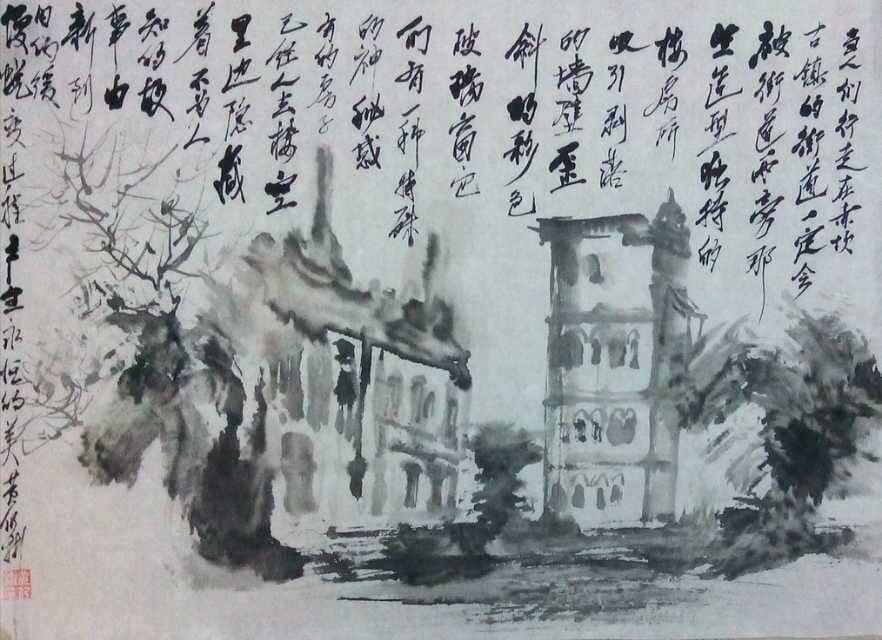 当人们行走在赤坎
古镇的街道一定会
被街道两旁那
些造型独特的
楼房所
吸引剥落
的墙壁歪
斜的彩色
玻璃窗它
们有一种特殊
的神秘感
有的房子
已经人去楼空
里边隐藏
着不为人
知的故
事由
新到
旧的缓
慢蜕变过程产生永恒的美 黄